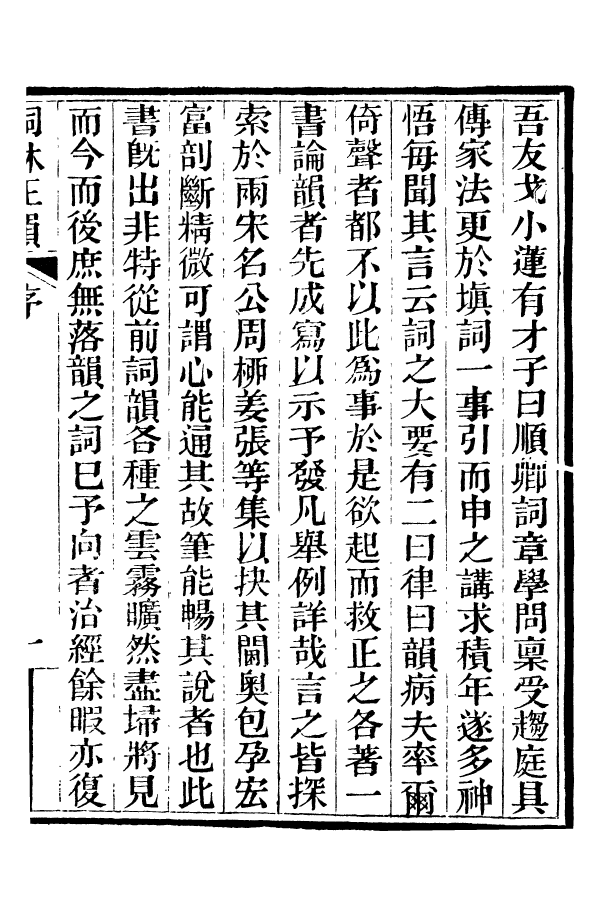 吾友戈小蓮有才子曰順卿詞章學問稟受趨庭具
傳家法更於塡詞一事引而申之講求積年遂多神
悟每聞其言云詞之大要有二曰律曰韻病夫率爾
倚聲者都不以此爲事於是欲起而救正之各著一
書論韻者先成寫以示予發凡舉例詳哉言之皆探
索於兩宋名公周柳姜張等集以抉其閫奧包孕宏
富剖斷精微可謂心能通其故筆能暢其說者也此
書旣出非特從前詞韻各種之雲霧曠然盡埽將見
而今而後庶無落韻之詞巳予向者治經餘暇亦復
詞林正韻 序 一